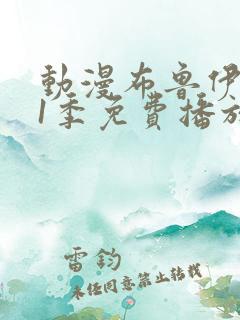 動漫布魯伊
1季免費播放
雷鈞
未经同意禁止转载